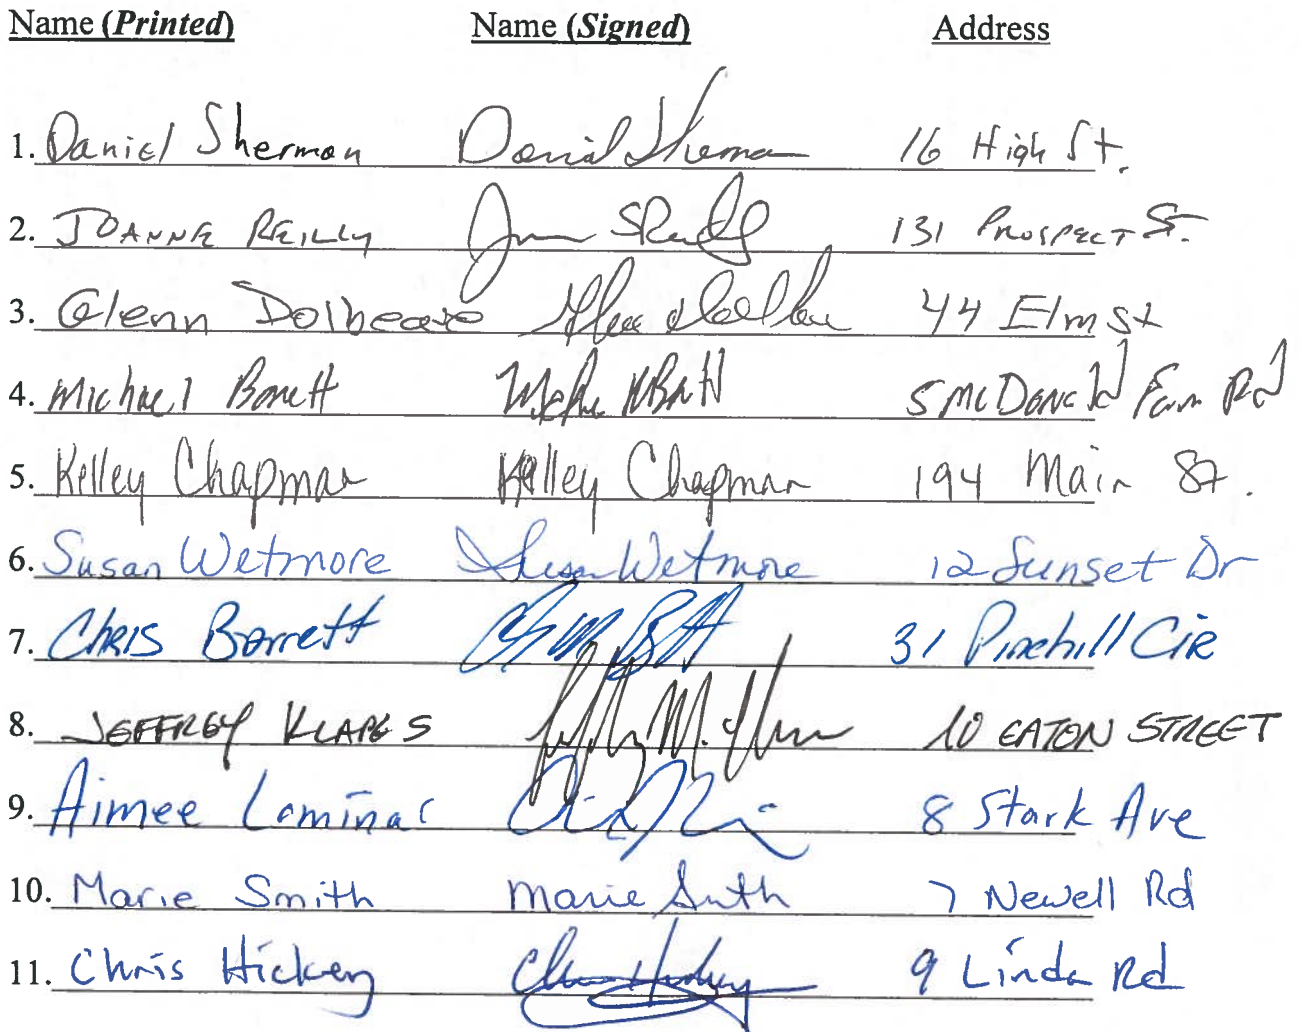 Name (Printed) Name (Signed) Address
1. Daniel Sherman Daniel Sherman 16 High St.
2. JOANNE REILLY 131 PROSPECT St.
3. Glenn Dolbeare 44 Elm St
4. Michael Barrett 5 McDonald Farm Rd
5. Kelley Chapman Kelley Chapman 194 Main St.
6. Susan Wetmore Susan Wetmore 12 Sunset Dr
7. Chris Barrett 31 Pinehill Cir
8. JEFFREY 10 EATON STREET
9. Aimee 8 Stark Ave
10. Marie Smith Marie Smith 7 Newell Rd
11. Chris Hickey Chris Hickey 9 Linda Rd